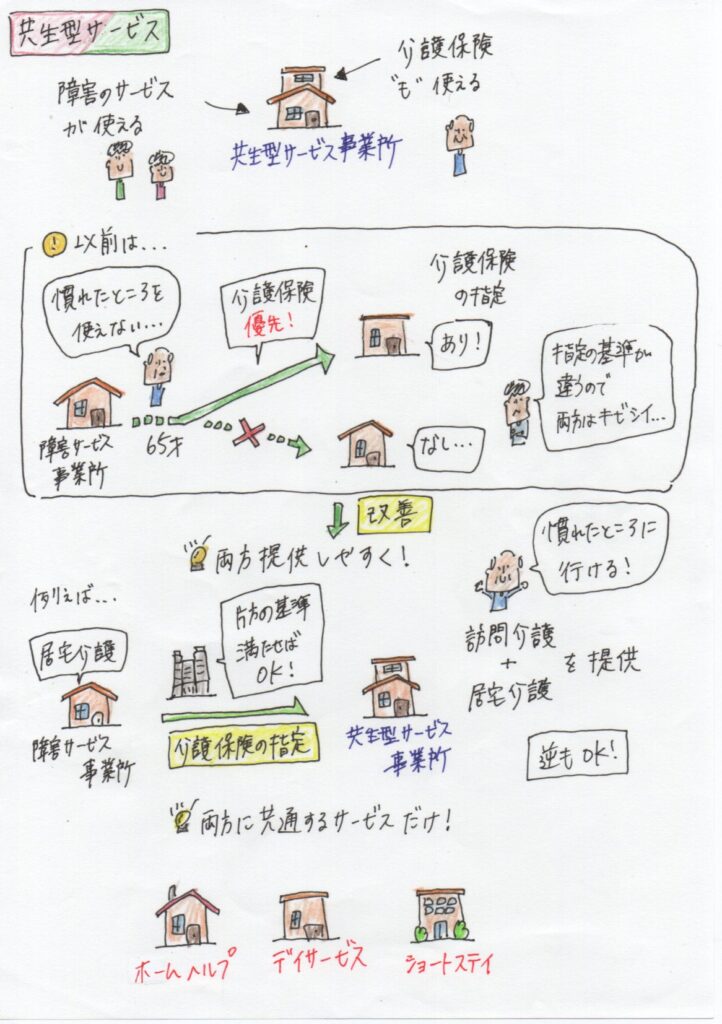 共生型サービス
障害のサービス
が使える
介護保険
"も"使える
共生型サービス事業所
! 以前は...
慣れたところを
使えない...
介護保険
優先!
介護保険
の指定
あり!
なし...
指定の基準が
違うので
両方はキビシイ...
障害サービス
事業所
65才
改善
両方提供しやすく!
慣れたところに
行ける!
例えば...
居宅介護
片方の基準
満たせば
OK!
訪問介護
+
居宅介護
を提供
障害サービス
事業所
介護保険の指定
共生型サービス
事業所
逆もOK!
両方に共通するサービスだけ!
ホームヘルプ
デイサービス
ショートステイ